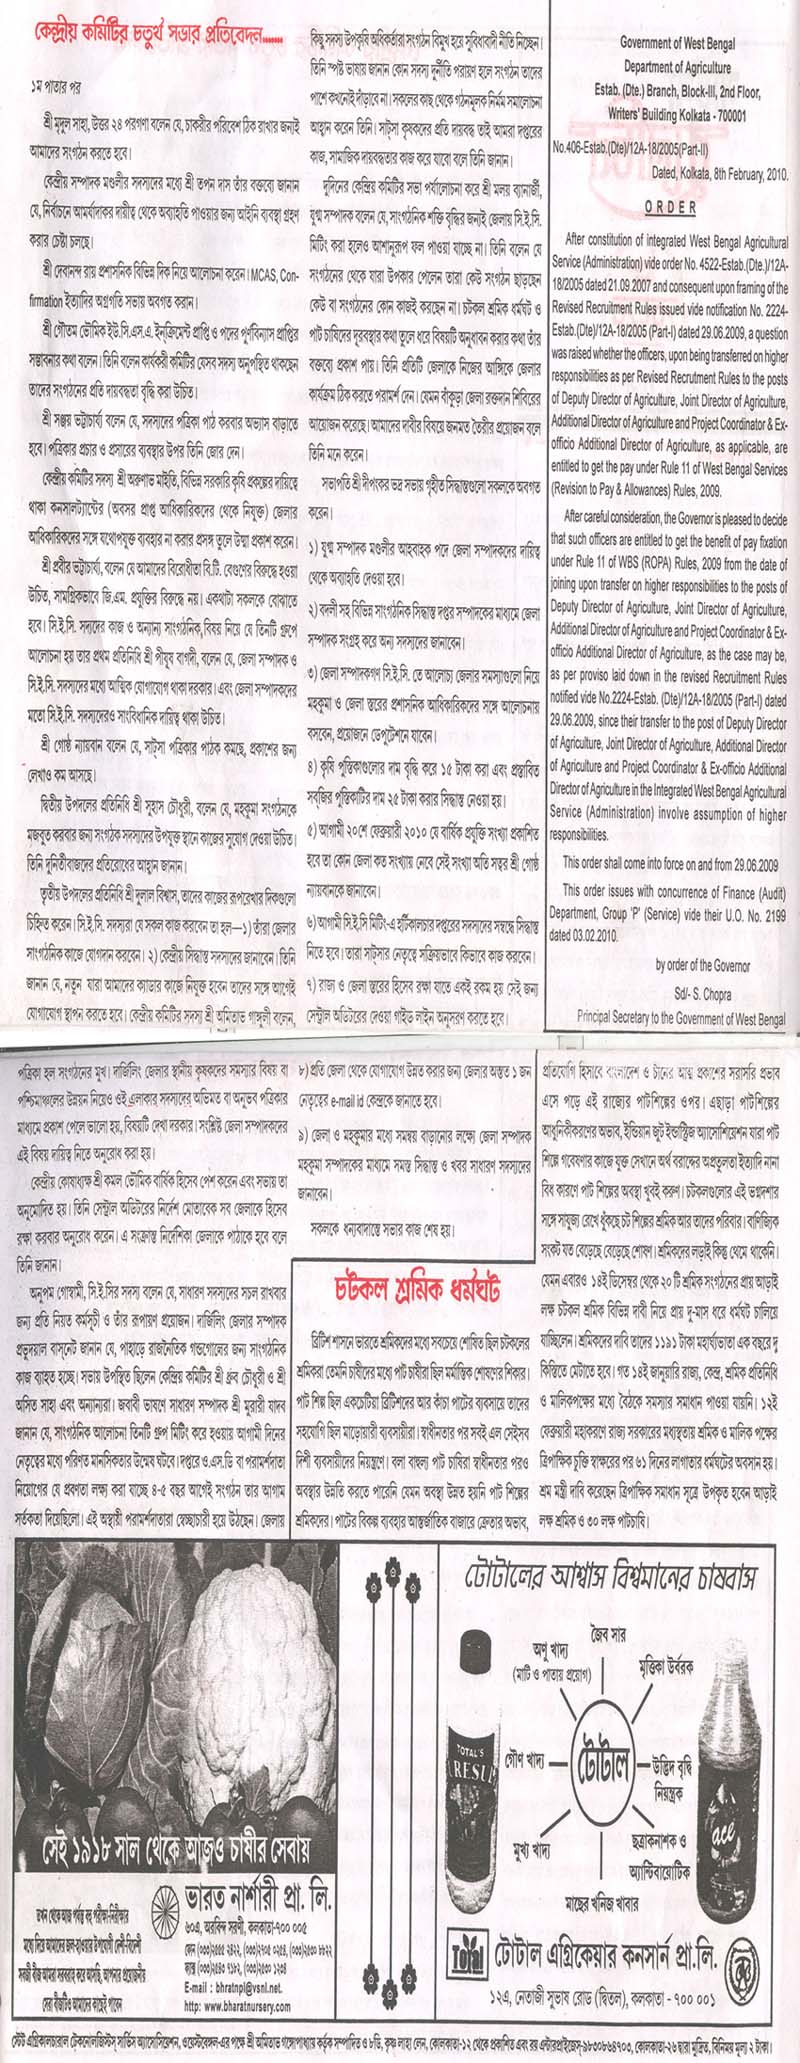 কেন্দ্রীয় কমিটির চতুর্থ সভার প্রতিবেদন......
১ম পাতার পর
শ্রী মৃদুল সাহা, উত্তর ২৪ পরগণা বলেন যে, চাকরীর পরিবেশ ঠিক রাখার জন্যই
আমাদের সংগঠন করতে হবে।
কেন্দ্রীয় সম্পাদক মণ্ডলীর সদস্যদের মধ্যে শ্রী তপন দাস তাঁর বক্তব্যে জানান
যে, নির্বাচনে আমর্যাদাকর দায়ীত্ব থেকে অব্যাহতি পাওয়ার জন্য আইনি ব্যবস্থা গ্রহণ
করার চেষ্টা চলছে।
শ্রী দেবানন্দ রায় প্রশাসনিক বিভিন্ন দিক নিয়ে আলোচনা করেন। MCAS, Con-
firmation ইত্যাদির অগ্রগতি সভায় অবগত করান।
শ্রী গৌতম ভৌমিক ইউ.সি.এস.এ. ইনক্রিমেন্ট প্রাপ্তি ও পদের পুর্ণবিন্যাস প্রাপ্তির
সম্ভাবনার কথা বলেন। তিনি বলেন কার্যকরী কমিটির যেসব সদস্য অনুপস্থিত থাকছেন
তাদের সংগঠনের প্রতি দায়বদ্ধতা বৃদ্ধি করা উচিত।
শ্রী সঞ্জয় ভট্টাচার্য্য বলেন যে, সদস্যদের পত্রিকা পাঠ করবার অভ্যাস বাড়াতে
হবে। পত্রিকার প্রচার ও প্রসারের ব্যবস্থার উপর তিনি জোর দেন।
কেন্দ্রীয় কমিটির সদস্য শ্রী অরুণাভ মাইতি, বিভিন্ন সরকারি কৃষি প্রকল্পের দায়িত্বে
থাকা কনসালট্যান্টের (অবসর প্রাপ্ত আধিকারিকদের থেকে নিযুক্ত) জেলার
আধিকারিকদের সঙ্গে যথোপযুক্ত ব্যবহার না করার প্রসঙ্গ তুলে উষ্মা প্রকাশ করেন।
শ্রী প্রবীর ভট্টাচার্য্য, বলেন যে আমাদের বিরোধীতা বি.টি. বেগুণের বিরুদ্ধে হওয়া
উচিত, সামগ্রিকভাবে জি.এম. প্রযুক্তির বিরুদ্ধে নয়। একথাটা সকলকে বোঝাতে
হবে। সি.ই.সি. সদ্যদের কাজ ও অন্যান্য সাংগঠনিক, বিষয় নিয়ে যে তিনটি গ্রুপে
আলোচনা হয় তার প্রথম প্রতিনিধি শ্রী পীযূষ বাগদী, বলেন যে, জেলা সম্পাদক ও
সি.ই.সি. সদস্যদের মধ্যে আত্মিক যোগাযোগ থাকা দরকার। এবং জেলা সম্পাদকদের
মতো সি.ই.সি. সদস্যদেরও সাংবিধানিক দায়িত্ব থাকা উচিত।
শ্রী গোষ্ঠ ন্যায়বান বলেন যে, সাট্‌সা পত্রিকার পাঠক কমছে, প্রকাশের জন্য
লেখাও কম আসছে।
দ্বিতীয় উপদলের প্রতিনিধি শ্রী সুহাস চৌধুরী, বলেন যে, মহকুমা সংগঠনকে
মজবুত করবার জন্য সংগঠক সদস্যদের উপযুক্ত স্থানে কাজের সুযোগ দেওয়া উচিত।
তিনি দুনিতীবাজদের প্রতিরোধের আহ্বান জানান।
তৃতীয় উপদলের প্রতিনিধি শ্রী দুলাল বিশ্বাস, তাদের কাজের রূপরেখার দিকগুলো
চিহ্নিত করেন। সি.ই.সি. সদস্যরা যে সকল কাজ করবেন তা হল—১) তাঁরা জেলার
সাংগঠনিক কাজে যোগদান করবেন। ২) কেন্দ্রীয় সিদ্ধান্ত সদস্যদের জানাবেন। তিনি
জানান যে, নতুন যারা আমাদের ক্যাডার কাজে নিযুক্ত হবেন তাদের সঙ্গে আগেই
যোগাযোগ স্থাপন করতে হবে। কেন্দ্রীয় কমিটির সদস্য শ্রী অমিতাভ গাঙ্গুলী বলেন,
কিছু সদস্য উপকৃষি অধিকর্তারা সংগঠন বিমুখ হয়ে সুবিধাবাদী নীতি নিচ্ছেন।
তিনি স্পষ্ট ভাষায় জানান কোন সদস্য দুর্নীতি পরায়ণ হলে সংগঠন তাদের
পাশে কখনোই দাঁড়াবে না। সকলের কাছ থেকে গঠনমূলক নির্মম সমালোচনা
আহ্বান করেন তিনি। সাট্‌সা কৃষকদের প্রতি দায়বদ্ধ তাই আমরা দপ্তরের
কাজ, সামাজিক দায়বদ্ধতার কাজ করে যাবো বলে তিনি জানান।
দুদিনের কেন্দ্রিয় কমিটির সভা পর্যালোচনা করে শ্রী মলয় ব্যানার্জী,
যুগ্ম সম্পাদক বলেন যে, সাংগঠনিক শক্তি বৃদ্ধির জন্যই জেলায় সি.ই.সি.
মিটিং করা হলেও আশানুরূপ ফল পাওয়া যাচ্ছে না। তিনি বলেন যে
সংগঠনের থেকে যারা উপকার পেলেন তারা কেউ সংগঠন ছাড়ছেন
কেউ বা সংগঠনের কোন কাজই করছেন না। চটকল শ্রমিক ধর্মঘট ও
পাট চাষিদের দূরবস্থার কথা তুলে ধরে বিষয়টি অনুধাবন করার কথা তাঁর
বক্তব্যে প্রকাশ পায়। তিনি প্রতিটি জেলাকে নিজের আঙ্গিকে জেলার
কার্যক্রম ঠিক করতে পরামর্শ দেন। যেমন বাঁকুড়া জেলা রক্তদান শিবিরের
আয়োজন করেছে। আমাদের দাবীর বিষয়ে জনমত তৈরীর প্রয়োজন বলে
তিনি মনে করেন।
সভাপতি শ্রী দীপংকর ভদ্র সভায় গৃহীত সিদ্ধান্তগুলো সকলকে অবগত
করেন।
১) যুগ্ম সম্পাদক মণ্ডলীর আহবাহক পদে জেলা সম্পাদকদের দায়িত্ব
থেকে অব্যাহতি দেওয়া হবে।
২) বদলী সহ বিভিন্ন সাংগঠনিক সিদ্ধান্ত দপ্তর সম্পাদকের মাধ্যমে জেলা
সম্পাদক সংগ্রহ করে অন্য সদস্যদের জানাবেন।
৩) জেলা সম্পাদকগণ সি.ই.সি. তে আলোচ্য জেলার সমস্যাগুলো নিয়ে
মহকুমা ও জেলা স্তরের প্রশাসনিক আধিকারিকদের সঙ্গে আলোচনায়
বসবেন, প্রয়োজনে ডেপুটেশনে যাবেন।
৪) কৃষি পুস্তিকাগুলোর দাম বৃদ্ধি করে ১৫ টাকা করা এবং প্রস্তাবিত
সব্‌জির পুস্তিকাটির দাম ২৫ টাকা করার সিদ্ধান্ত নেওয়া হয়।
৫) আগামী ২০শে ফেব্রুয়ারী ২০১০ যে বার্ষিক প্রযুক্তি সংখ্যা প্রকাশিত
হবে তা কোন জেলা কত সংখ্যায় নেবে সেই সংখ্যা অতি সত্বর শ্রী গোষ্ঠ
ন্যায়বানকে জানাবেন।
৬) আগামী সি.ই.সি মিটিং-এ হর্টিকালচার দপ্তরের সদস্যদের সম্বন্ধে সিদ্ধান্ত
নিতে হবে। তারা সাট্‌সার নেতৃত্বে সক্রিয়ভাবে কিভাবে কাজ করবেন।
৭) রাজ্য ও জেলা স্তরের হিসেব রক্ষা যাতে একই রকম হয় সেই জন্য
সেন্ট্রাল অডিটরের দেওয়া গাইড লাইন অনুসরণ করতে হবে।
Government of West Bengal
Department of Agriculture
Estab. (Dte.) Branch, Block-III, 2nd Floor,
Writers' Building Kolkata - 700001
No.406-Estab.(Dte)/12A-18/2005(Part-II)
Dated, Kolkata, 8th February, 2010.
ORDER
After constitution of integrated West Bengal Agricultural
Service (Administration) vide order No. 4522-Estab.(Dte.)/12A-
18/2005 dated 21.09.2007 and consequent upon framing of the
Revised Recruitment Rules issued vide notification No. 2224-
Estab.(Dte)/12A-18/2005 (Part-I) dated 29.06.2009, a question
was raised whether the officers, upon being transferred on higher
responsibilities as per Revised Recrutment Rules to the posts
of Deputy Director of Agriculture, Joint Director of Agriculture,
Additional Director of Agriculture and Project Coordinator & Ex-
officio Additional Director of Agriculture, as applicable, are
entitled to get the pay under Rule 11 of West Bengal Services
(Revision to Pay & Allowances) Rules, 2009.
After careful consideration, the Governor is pleased to decide
that such officers are entitled to get the benefit of pay fixation
under Rule 11 of WBS (ROPA) Rules, 2009 from the date of
joining upon transfer on higher responsibilities to the posts of
Deputy Director of Agriculture, Joint Director of Agriculture,
Additional Director of Agriculture and Project Coordinator & Ex-
officio Additional Director of Agriculture, as the case may be,
as per proviso laid down in the revised Recruitment Rules
notified vide No.2224-Estab. (Dte)/12A-18/2005 (Part-I) dated
29.06.2009, since their transfer to the post of Deputy Director
of Agriculture, Joint Director of Agriculture, Additional Director
of Agriculture and Project Coordinator & Ex-officio Additional
Director of Agriculture in the Integrated West Bengal Agricultural
Service (Administration) involve assumption of higher
responsibilities.
This order shall come into force on and from 29.06.2009
This order issues with concurrence of Finance (Audit)
Department, Group 'P' (Service) vide their U.O. No. 2199
dated 03.02.2010.
by order of the Governor
Sd/- S. Chopra
Principal Secretary to the Government of West Bengal
পত্রিকা হল সংগঠনের মুখ। দার্জিলিং জেলার স্থানীয় কৃষকদের সমস্যার বিষয় বা
পশ্চিমাঞ্চলের উন্নয়ন নিয়েও ওই এলাকার সদস্যদের অভিমত বা অনুভব পত্রিকার
মাধ্যমে প্রকাশ পেলে ভালো হয়, বিষয়টি দেখা দরকার। সংশ্লিষ্ট জেলা সম্পাদকদের
এই বিষয় দায়িত্ব নিতে অনুরোধ করা হয়।
কেন্দ্রীয় কোষাধ্যক্ষ শ্রী কমল ভৌমিক বার্ষিক হিসেব পেশ করেন এবং সভায় তা
অনুমোদিত হয়। তিনি সেন্ট্রাল অডিটরের নির্দেশ মোতাবেক সব জেলাকে হিসেব
রক্ষা করবার অনুরোধ করেন। এ সংক্রান্ত নির্দেশিকা জেলাকে পাঠাকে হবে বলে
তিনি জানান।
অনুপম গোস্বামী, সি.ই.সির সদস্য বলেন যে, সাধারণ সদস্যদের সচল রাখবার
জন্য প্রতি নিয়ত কর্মসূচী ও তাঁর রূপায়ণ প্রয়োজন। দার্জিলিং জেলার সম্পাদক
প্রভুদয়াল বাস্‌নেট জানান যে, পাহাড়ে রাজনৈতিক গন্ডগোলের জন্য সাংগঠনিক
কাজ ব্যাহত হচ্ছে। সভায় উপস্থিত ছিলেন কেন্দ্রিয় কমিটির শ্রী ধ্রুব চৌধুরী ও শ্রী
অসিত সাহা এবং অন্যান্যরা। জবাবী ভাষণে সাধারণ সম্পাদক শ্রী মুরারী যাদব
জানান যে, সাংগঠনিক আলোচনা তিনটি গ্রুপ মিটিং করে হওয়ায় আগামী দিনের
নেতৃত্বের মধ্যে পরিণত মানসিকতার উন্মেষ ঘটবে। দপ্তরে ও.এস.ডি বা পরামর্শদাতা
নিয়োগের যে প্রবণতা লক্ষ্য করা যাচ্ছে ৪-৫ বছর আগেই সংগঠন তার আগাম
সর্তকতা দিয়েছিলো। এই অস্থায়ী পরামর্শদাতারা স্বেচ্ছাচারী হয়ে উঠছেন। জেলায়
৮) প্রতি জেলা থেকে যোগাযোগ উন্নত করার জন্য জেলার অন্তত ১ জন
নেতৃত্বের e-mail id কেন্দ্রকে জানাতে হবে।
৯) জেলা ও মহকুমার মধ্যে সমন্বয় বাড়ানোর লক্ষ্যে জেলা সম্পাদক
মহকুমা সম্পাদকের মাধ্যমে সমস্ত সিদ্ধান্ত ও খবর সাধারণ সদস্যদের
জানাবেন।
সকলকে ধন্যবাদান্তে সভার কাজ শেষ হয়।
চটকল শ্রমিক ধর্মঘট
ব্রিটিশ শাসনে ভারতে শ্রমিকদের মধ্যে সবচেয়ে শোষিত ছিল চটকলের
শ্রমিকরা তেমনি চাষীদের মধ্যে পাট চাষীরা ছিল মর্মান্তিক শোষণের শিকার।
পাট শিল্প ছিল একচেটিয়া ব্রিটিশদের আর কাঁচা পাটের ব্যবসায়ে তাদের
সহযোগি ছিল মাড়োয়ারী ব্যবসায়ীরা। স্বাধীনতার পর সবই এল সেইসব
দিশী ব্যবসায়ীদের নিয়ন্ত্রণে। বলা বাহুল্য পাট চাষিরা স্বাধীনতার পরও
অবস্থার উন্নতি করতে পারেনি যেমন অবস্থা উন্নত হয়নি পাট শিল্পের
শ্রমিকদের। পাটের বিকল্প ব্যবহার আন্তর্জাতিক বাজারে ক্রেতার অভাব,
প্রতিযোগি হিসাবে বাংলাদেশ ও চীনের আত্ম প্রকাশের সরাসরি প্রভাব
এসে পড়ে এই রাজ্যের পাটশিল্পের ওপর। এছাড়া পাটশিল্পের
আধুনিকীকরণের অভাব, ইন্ডিয়ান জুট ইন্ডাস্ট্রিজ অ্যাসোশিয়েশন যারা পাট
শিল্পে গবেষণার কাজে যুক্ত সেখানে অর্থ বরাদ্দের অপ্রতুলতা ইত্যাদি নানা
বিধ কারণে পাট শিল্পের অবস্থা খুবই করুণ। চটকলগুলোর এই ভগ্নদশার
সঙ্গে সাযুজ্য রেখে ধুঁকছে চট শিল্পের শ্রমিক আর তাদের পরিবার। বাণিজ্যিক
সংকট যত বেড়েছে বেড়েছে শোষণ। শ্রমিকদের লড়াই কিন্তু থেমে থাকেনি।
যেমন এবারও ১৪ই ডিসেম্বর থেকে ২০ টি শ্রমিক সংগঠনের প্রায় আড়াই
লক্ষ চটকল শ্রমিক বিভিন্ন দাবী নিয়ে প্রায় দু-মাস ধরে ধর্মঘট চালিয়ে
যাচ্ছিলেন। শ্রমিকদের দাবি তাদের ১১৯১ টাকা মহার্ঘ্যভাতা এক বছরে দু
কিস্তিতে মেটাতে হবে। গত ১৪ই জানুয়ারি রাজ্য, কেন্দ্র, শ্রমিক প্রতিনিধি
ও মালিকপক্ষের মধ্যে বৈঠকে সমস্যার সমাধান পাওয়া যায়নি। ১২ই
ফেব্রুয়ারী মহাকরণে রাজ্য সরকারের মধ্যস্থতায় শ্রমিক ও মালিক পক্ষের
ত্রিপাক্ষিক চুক্তি স্বাক্ষরের পর ৬১ দিনের লাগাতার ধর্মঘটের অবসান হয়।
শ্রম মন্ত্রী দাবি করেছেন ত্রিপাক্ষিক সমাধান সূত্রে উপকৃত হবেন আড়াই
লক্ষ শ্রমিক ও ৩০ লক্ষ পাটচাষি।
সেই ১৯১৮ সাল থেকে আজও চাষীর সেবায়
তখন থেকে আজ পর্যন্ত বহু পরীক্ষা-নিরীক্ষার
মধ্যে দিয়ে আমাদের জল-হাওয়ার উপযোগী দেশী-বিদেশী
সব্জী বীজ আমরা সরবরাহ করে আসছি, আপনার প্রয়োজনীয়
সেরা বীজটিও আমাদের কাছেই পাবেন
ভারত নার্শারী প্রা. লি.
৬০এ, অরবিন্দ সরণী, কলকাতা-৭০০ ০০৫
E-mail : bhratnpl@vsnl.net
http: www.bharatnursery.com
টোটালের আশ্বাস বিশ্বমানের চাষবাস
জৈব সার
অণু খাদ্য
(মাটি ও পাতায় প্রয়োগ)
মৃত্তিকা উর্বরক
গৌণ খাদ্য
টোটাল
উদ্ভিদ বৃদ্ধি
নিয়ন্ত্রক
মুখ্য খাদ্য
ছত্রাকনাশক ও
অ্যান্টিবায়োটিক
মাছের খনিজ খাবার
TOTAL'S
ace
Total
টোটাল এগ্রিকেয়ার কনসার্ন প্রা.লি.
১২এ, নেতাজী সুভাষ রোড (দ্বিতল), কলকাতা - ৭০০ ০০১
স্টেট এগ্রিকালচারাল টেকনোলজিস্টস্ সার্ভিস অ্যাসোসিয়েশন, ওয়েস্টবেঙ্গল-এর পক্ষে শ্রী অমিতাভ গঙ্গোপাধ্যায় কর্তৃক সম্পাদিত ও ৮ডি, কৃষ্ণ লাহা লেন, কোলকাতা-১২ থেকে প্রকাশিত এবং রয় এন্টারপ্রাইজেস্-৯৮৩০৮৬৪৭০৩, কোলকাতা-২৬ দ্বারা মুদ্রিত, বিনিময় মূল্য ২ টাকা।